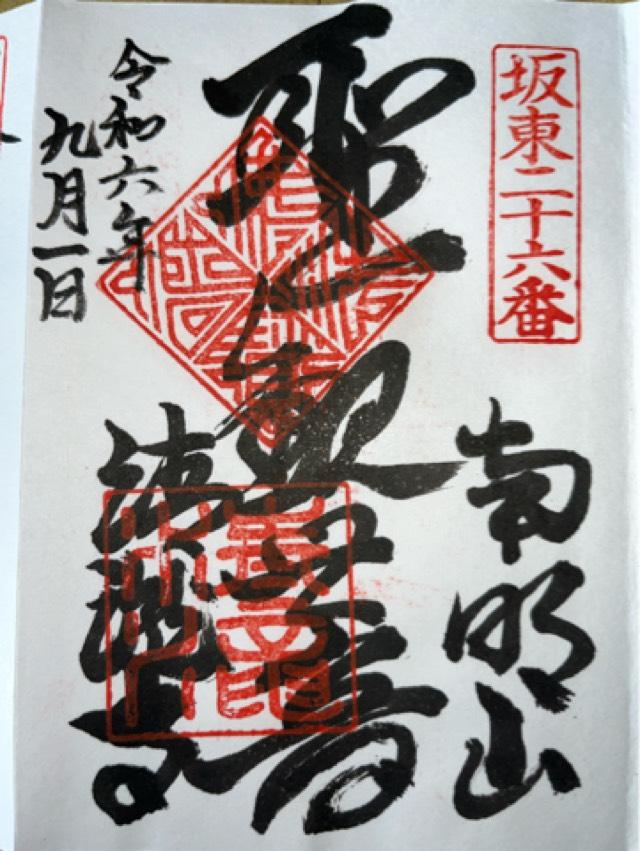 坂東二十六番
南明山
聖観世音
清瀧寺
令和六年
九月一日